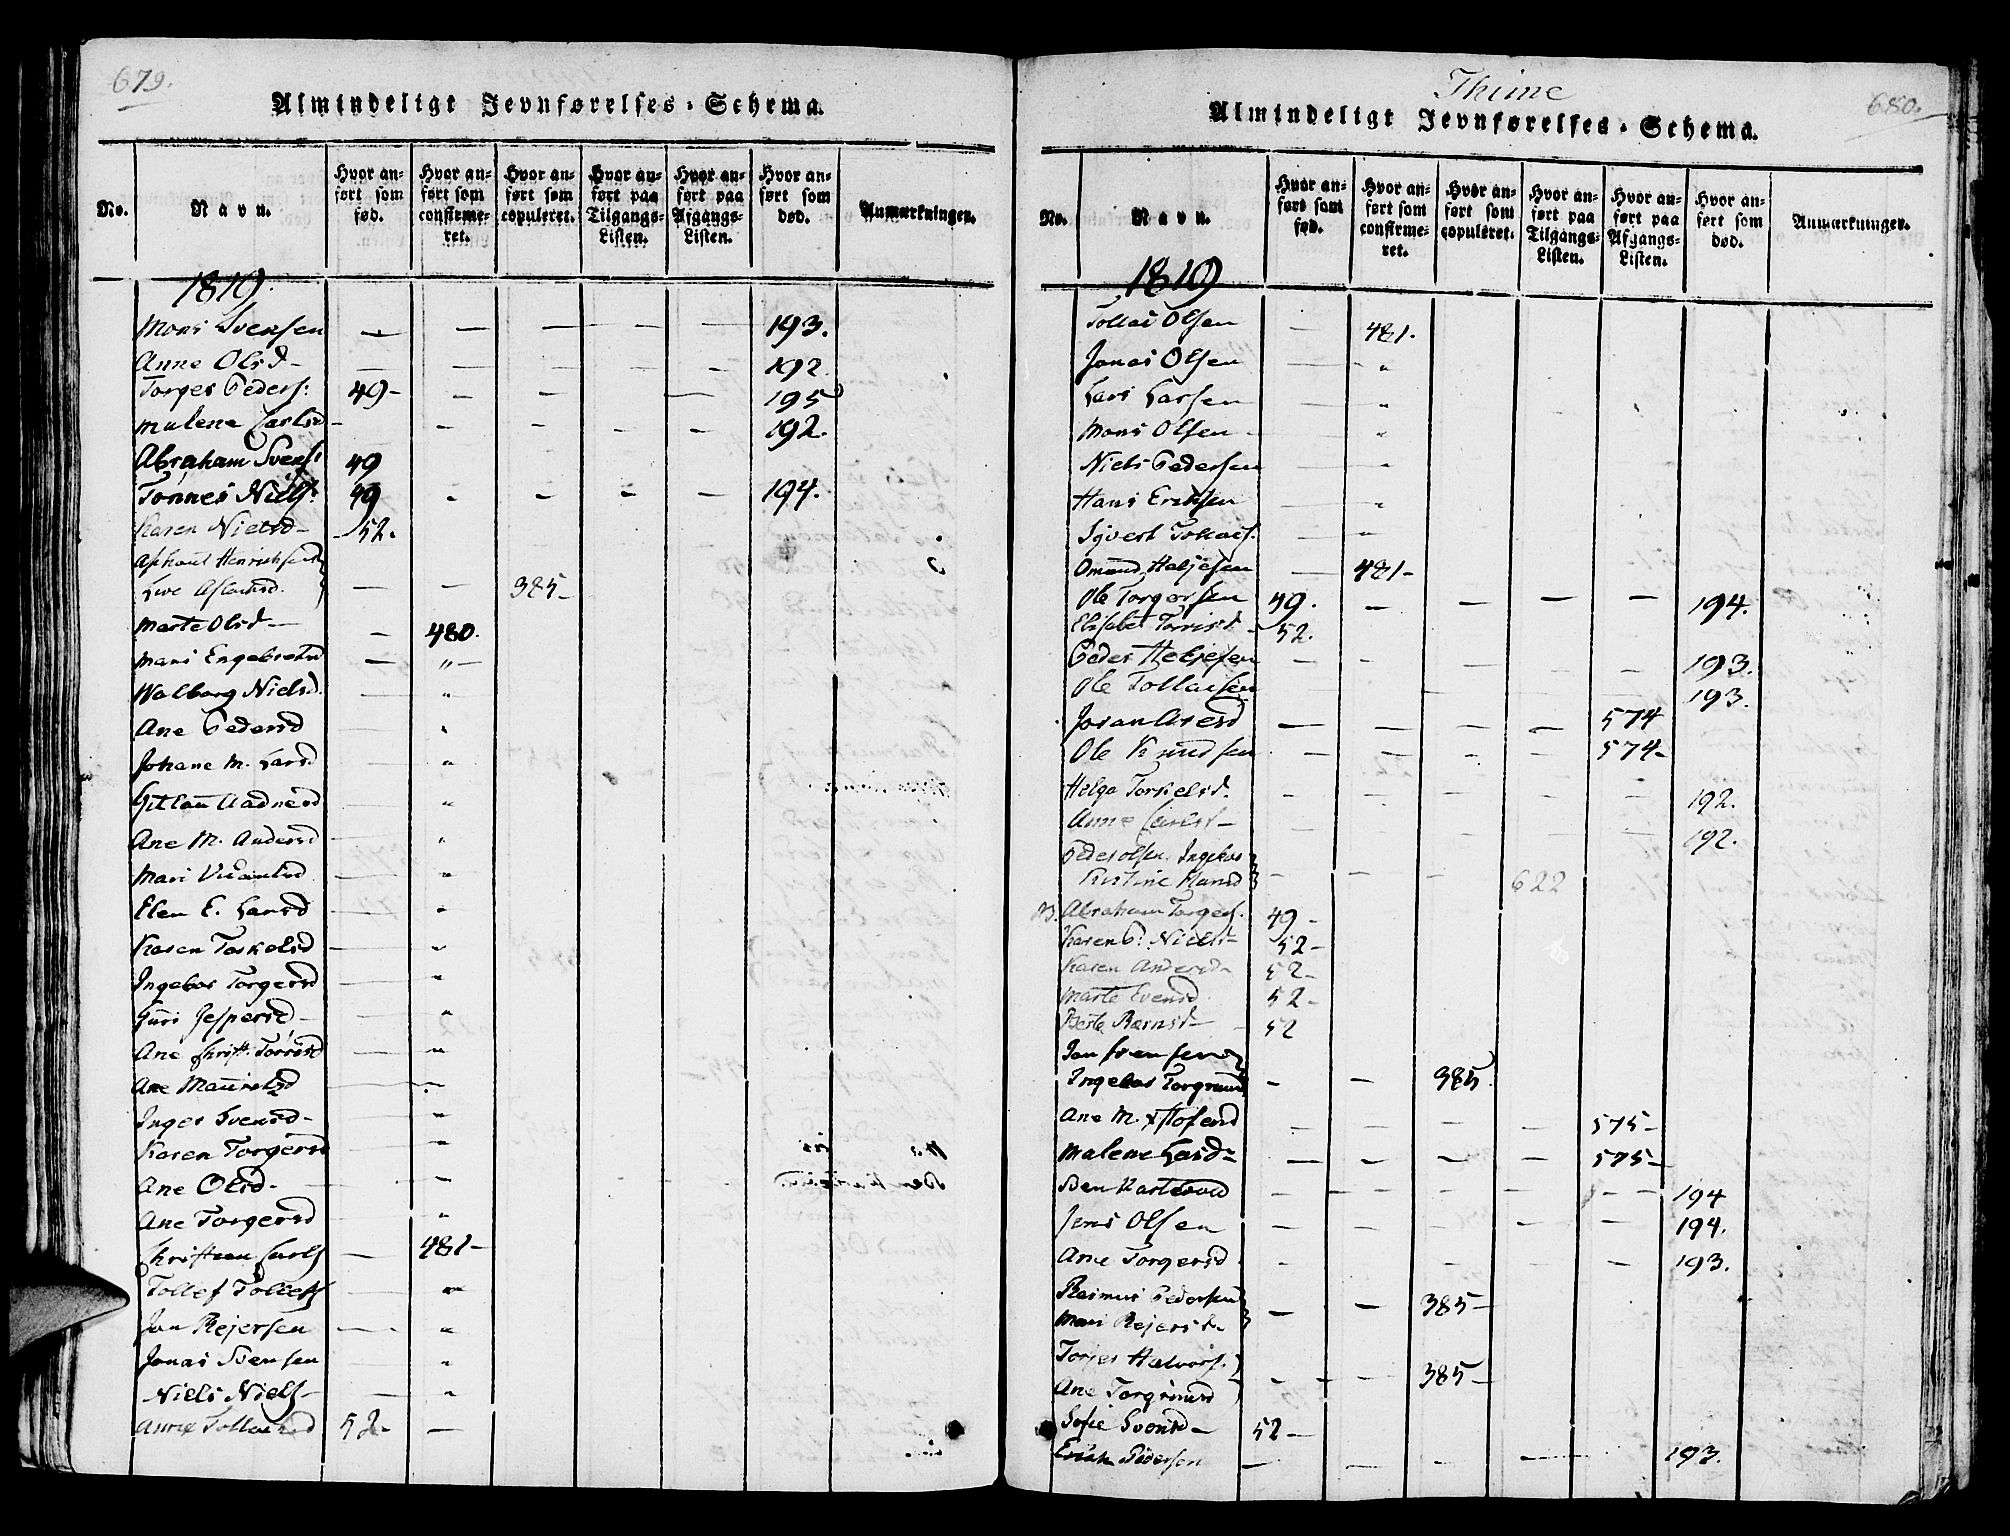 679.
Almindeligt Jevnførelses-Schema.
No.
Navn.
Hvor anført som fød.
Hvor anført som confirmeret.
Hvor anført som copuleret.
Hvor anført paa Tilgangs-Listen.
Hvor anført paa Afgangs-Listen.
Hvor anført som død.
Anmærkninger.
1819.
Mons Svensen — — — — — 193.
Anne Olsd — — — — — — 192.
Torger Peders: 49 — — — — 195
Malene Carlsd — — — — — 192.
Abraham Svens 49
Tønnes Niels: 49 - - - — 194.
Karen Nielsd — 52.
Henrichsen
Live Aslaksd. — — 385 —
Marte Olsd — — 480.
Mari Engebretsd — " —
Walborg Nielsd. — "
Ane Pedersd "
Johane M. Larsd "
Aadnesd — "
Ane M. Andersd — "
Mari — "
Elen E. Larsd — "
Karen Torkelsd — "
Ingebor Torgersd — "
Guri Jespersd — "
Ane Christ. Torrisd — "
Ane Mauritzd — "
Inger Svensd — — "
Karen Torgersd — "
Ane Olsd. — "
Ane Torgersd — "
Christen Carls — 481 —
Tollef Tollefs "
Jon Rejersen — "
Jonas Svensen "
Niels Niels — — "
Anne 52 — —
Thime
680.
Almindeligt Jevnførelses-Schema.
No.
Navn.
Hvor anført som fød.
Hvor anført som confirmeret.
Hvor anført som copuleret.
Hvor anført paa Tilgangs-Listen.
Hvor anført paa Afgangs-Listen.
Hvor anført som død.
Anmærkninger.
1819
Tollas Olsen — 481.
Jonas Olsen — "
Lars Larsen — "
Mons Olsen — "
Niels Pedersen — "
Hans Eriksen — "
Sivert Tollais. — "
Omund Heljesen — 481 —
Ole Torgersen 49. — — — — 194.
Elisabet Torrisd. 52.
Peder Heljesen — — — 193.
Ole Tollaisen — — 193.
Joran Aresd — — — — 574
Ole Knudsen — — — — 574 —
Helga Torkelsd. — — — — — 192.
Anne Carlsd — — — — — — 192.
Peder Olsen. Ingebor
Kirstine Hansd — — — 622
Abraham Torgers. 49 —
Karen P. Nielsd — 52 —
Karen Andersd — 52 —
Marte Evensd 52 —
Berte Bærnsd — 52
Jon Svensen
Ingebor Torgrimsd — — 385.
Ane M. — — — — 575 —
Malene Larsd — — — — — 575 —
— — — — — 194
Jens Olsen — — — — — 194.
Ane Torgersd. — — — 193.
Rasmus Pedersen
Mari Rejersd — — — 385 —
Torger Halvors.
Ane Torgrimsd — — — 385 —
Sofie Svensd — 52 —
Erich Pedersen — — — — 193.